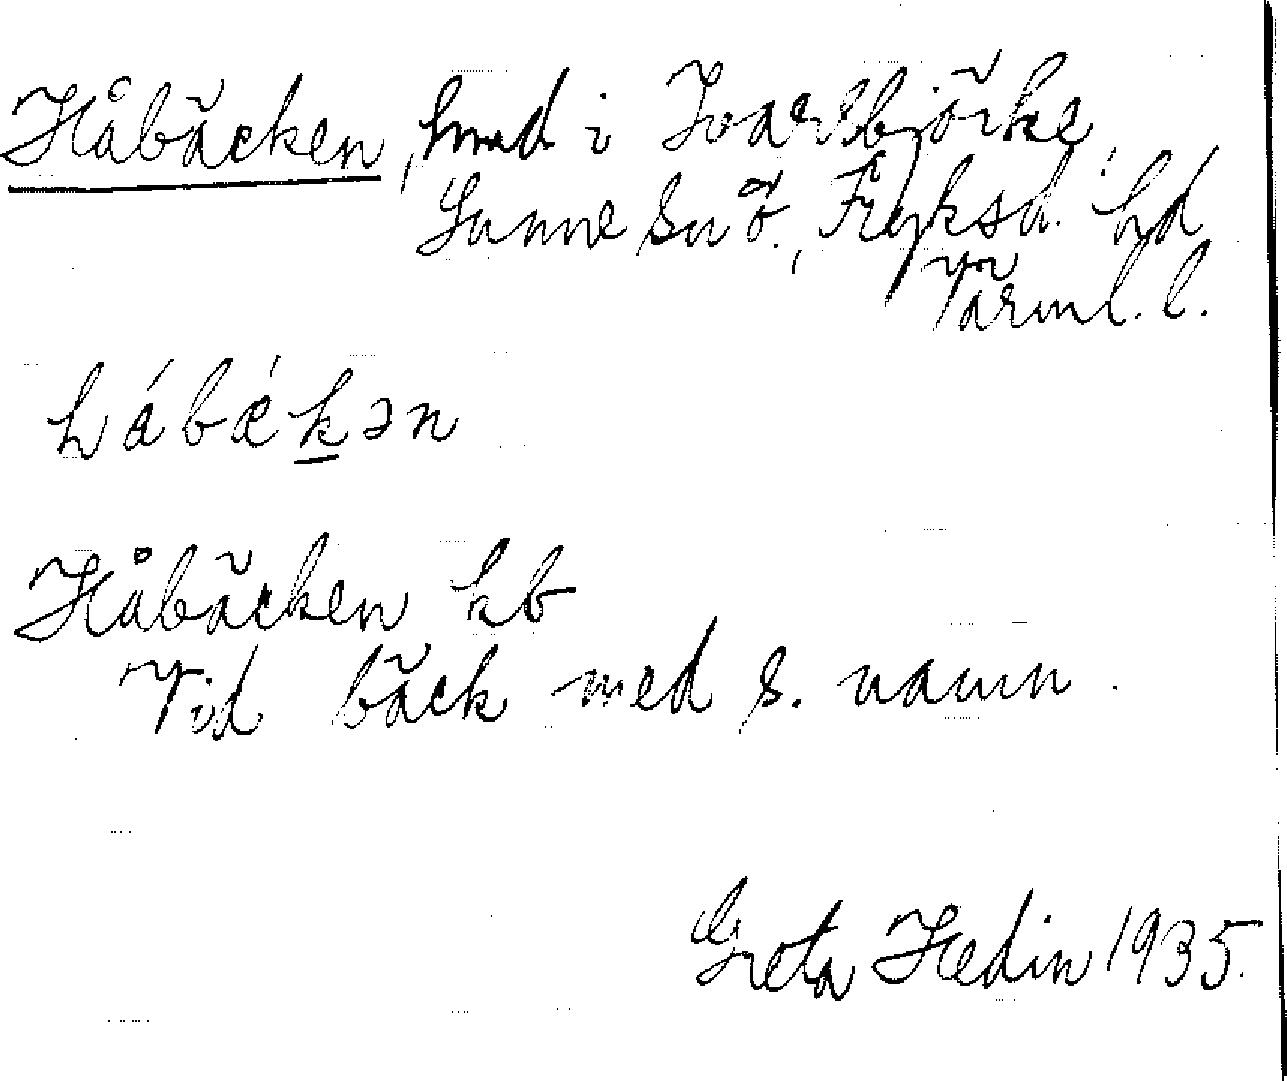 Håbäcken, hmd i Ivarsbjörke,
Sunne sn ö., Fryksd. hd
Värml. l.
hábǽkən
Håbäcken kb
Vid bäck med s. namn.
Greta Hedin 1935.